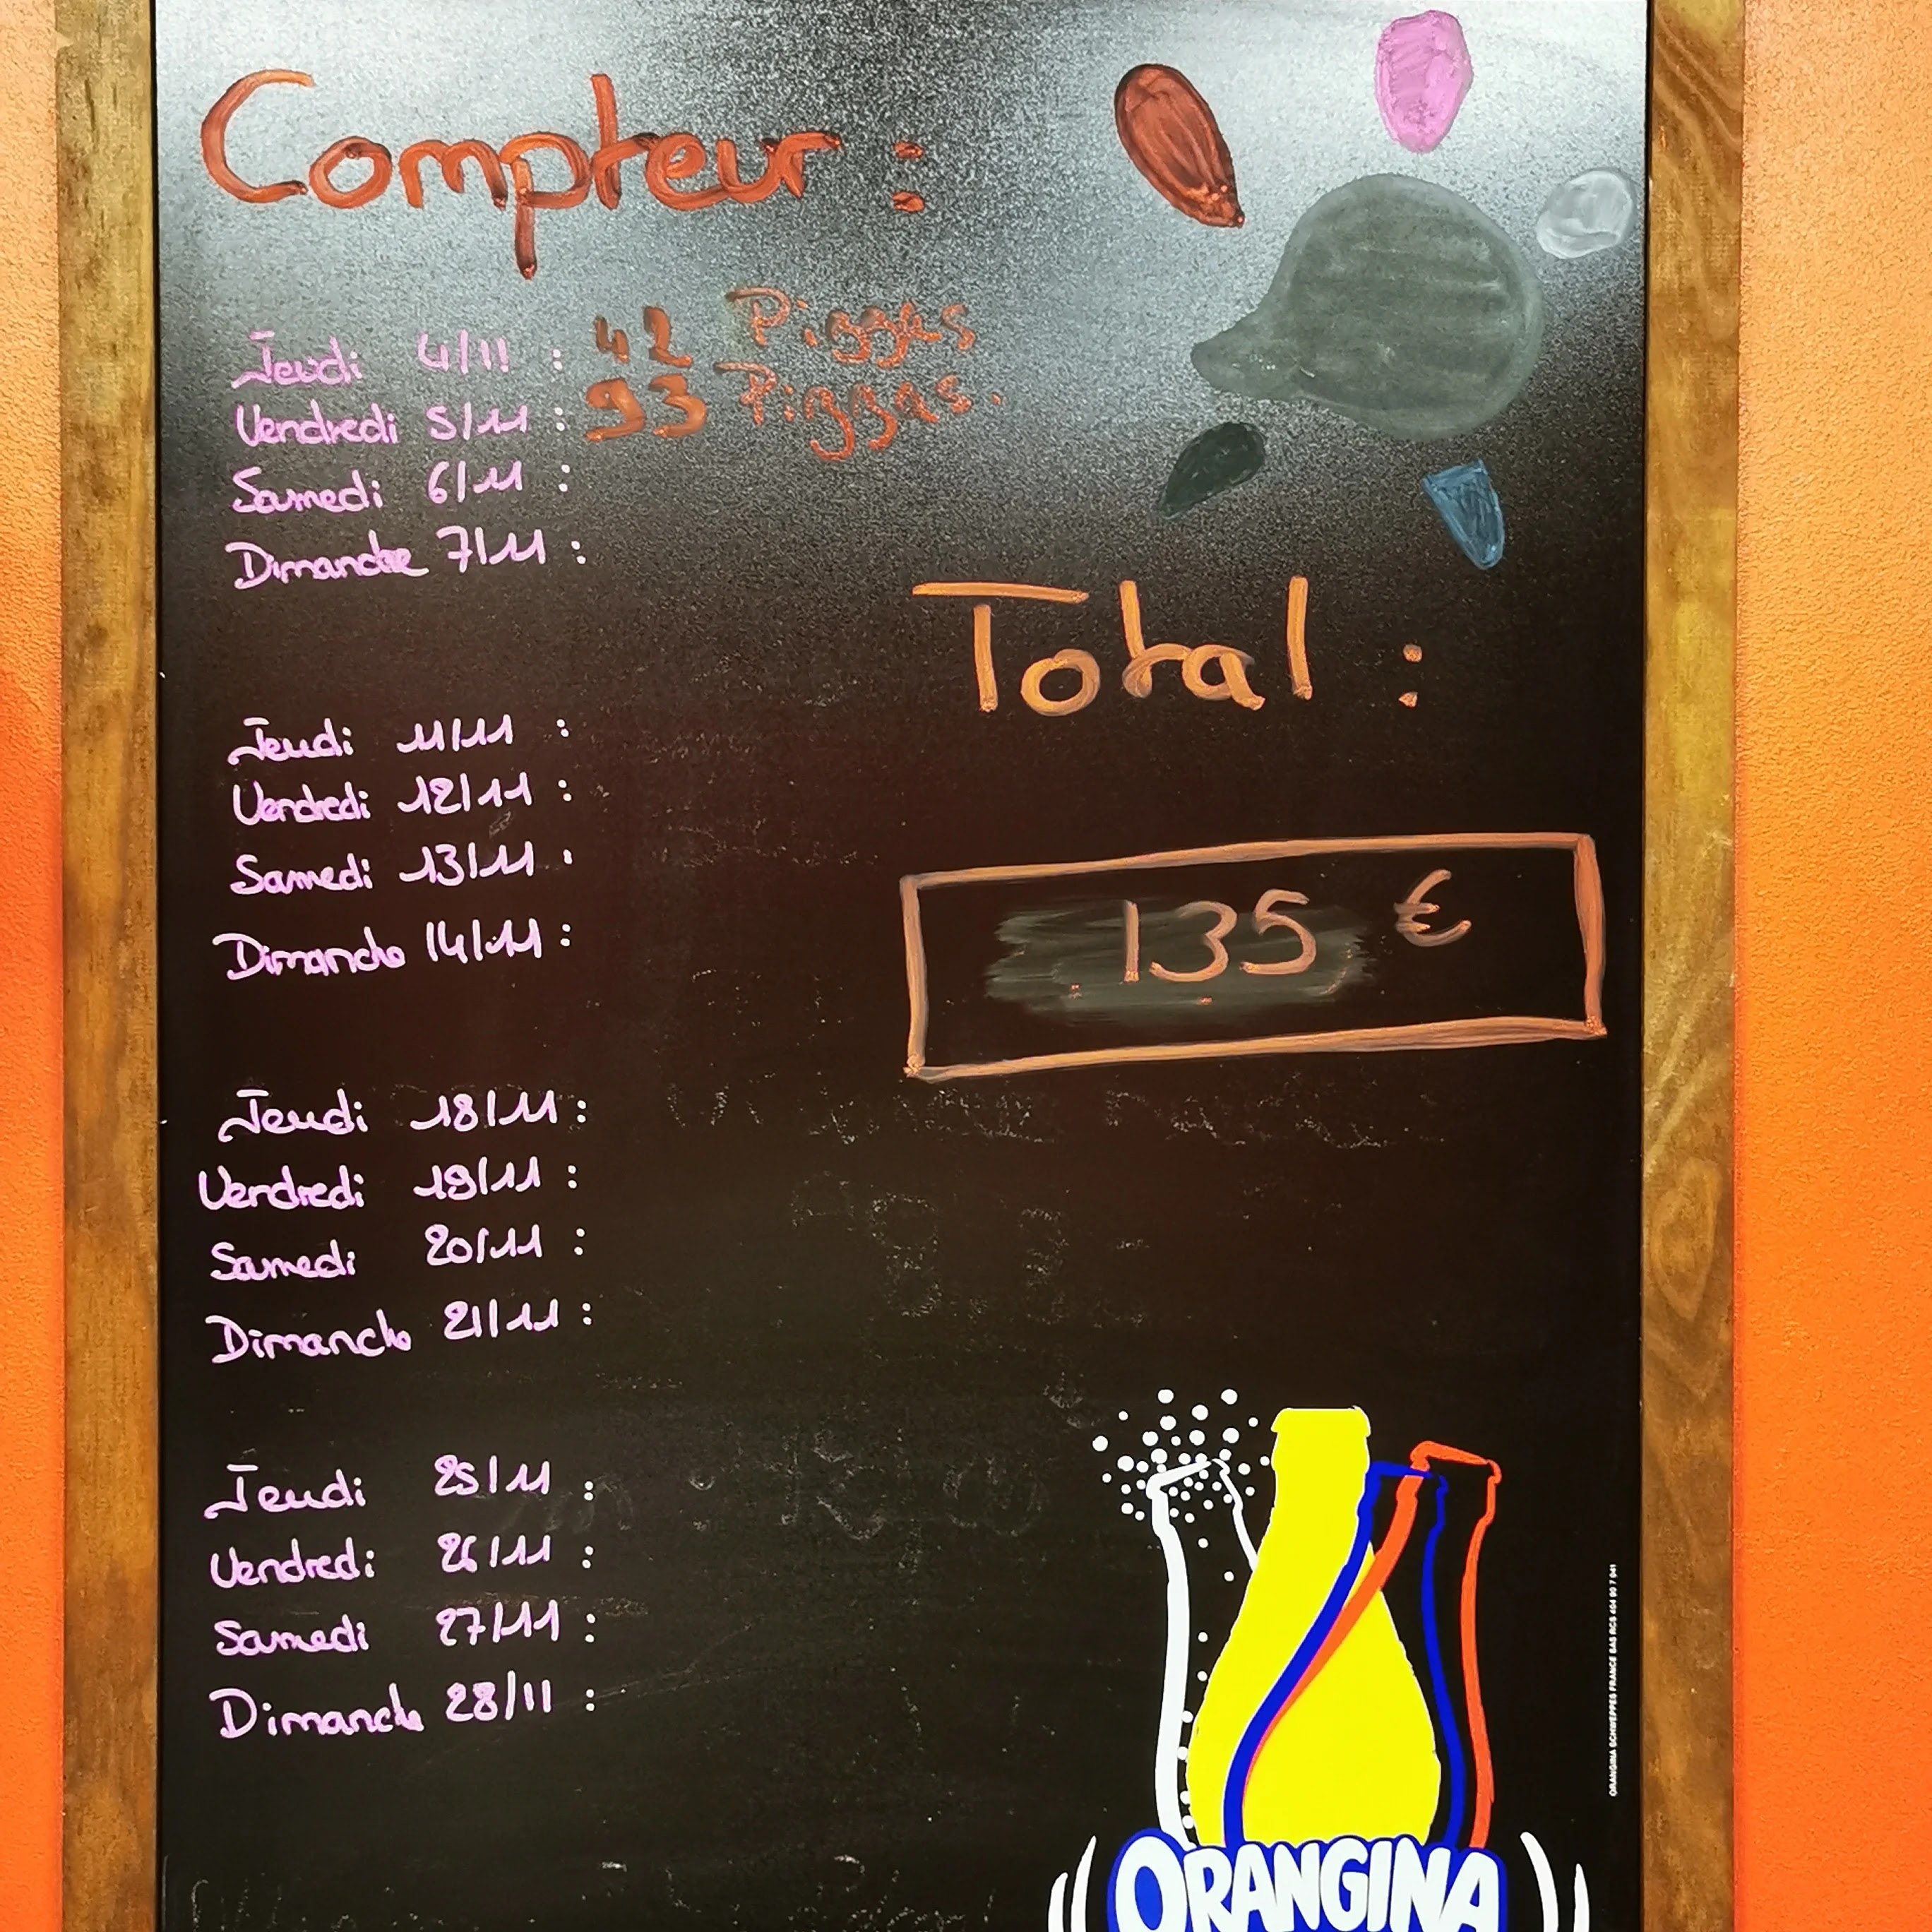 Compteur :
Jeudi 4/11 : 42 Pizzas
Vendredi 5/11 : 93 Pizzas.
Samedi 6/11 :
Dimanche 7/11 :
Total :
Jeudi 11/11 :
Vendredi 12/11 :
Samedi 13/11 :
135 €
Dimanche 14/11 :
Jeudi 18/11 :
Vendredi 19/11 :
Samedi 20/11 :
Dimanche 21/11 :
Jeudi 25/11 :
Vendredi 26/11 :
Samedi 27/11 :
Dimanche 28/11 :
ORANGINA
ORANGINA SCHWEPPES FRANCE SAS RCS 404 907 941